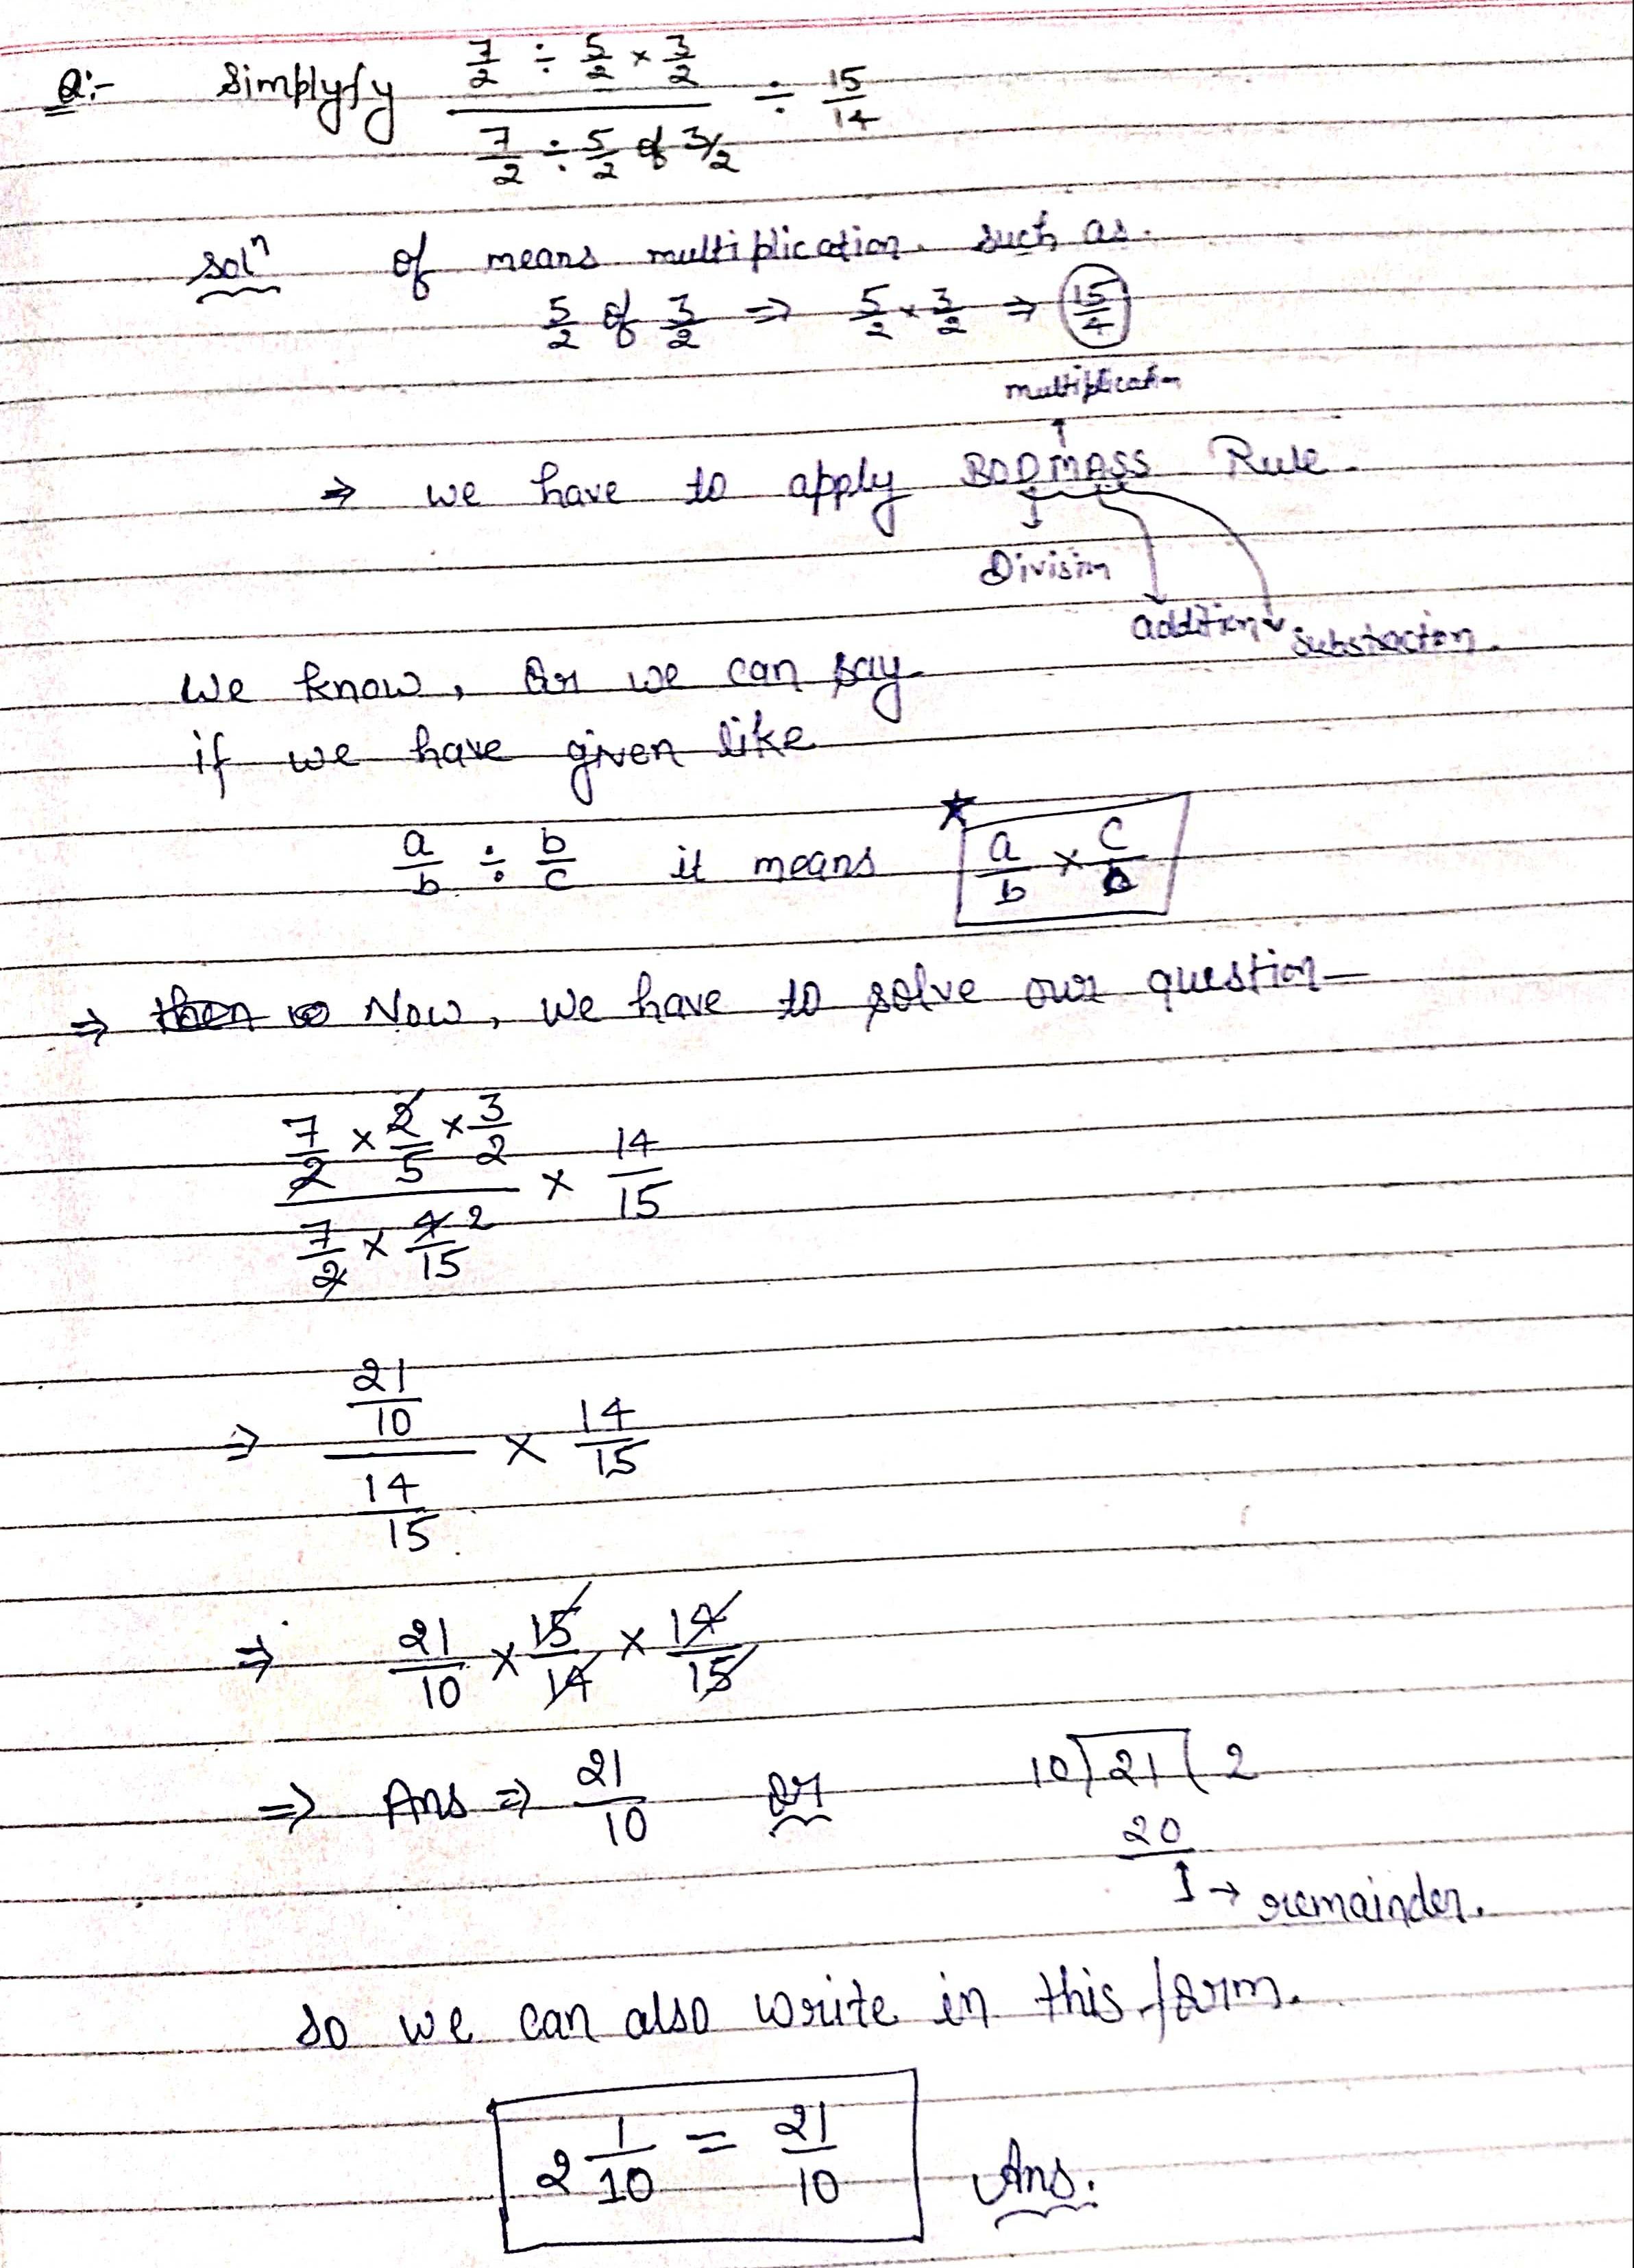 Q:- Simplyfy (7/2 ÷ 5/2 × 3/2) / (7/2 ÷ 5/2 of 3/2) ÷ 15/14
Solⁿ of means multiplication. such as.
5/2 of 3/2 ⇒ 5/2 × 3/2 ⇒ 15/4
multiplication
⇒ we have to apply BODMASS Rule.
Division
addition substraction.
We know, Or we can say
if we have given like
a/b ÷ b/c it means ★ a/b × c/b
⇒ then Now, we have to solve our question—
(7/2 × 2/5 × 3/2) / (7/2 × 4/15 2) × 14/15
⇒ (21/10) / (14/15) × 14/15
⇒ 21/10 × 15/14 × 14/15
⇒ Ans ⇒ 21/10 or 10)21(2
20
1 → remainder.
so we can also write in this form.
2 1/10 = 21/10 Ans.